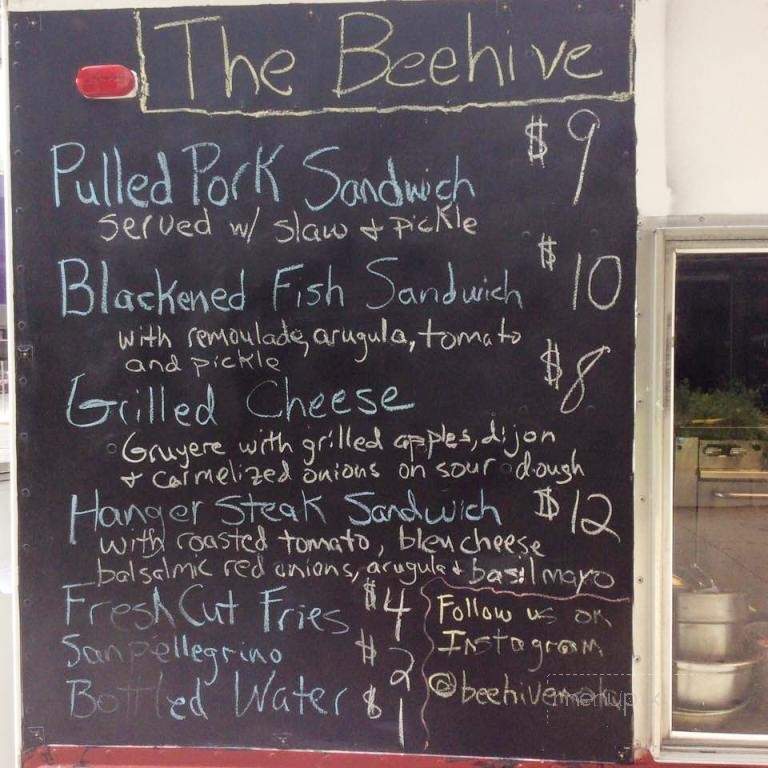 The Beehive
$9
Pulled Pork Sandwich
served w/ slaw + pickle
$10
Blackened Fish Sandwich
with remoulade, arugula, tomato
and pickle
$8
Grilled Cheese
Gruyere with grilled apples, dijon
+ carmelized onions on sour dough
Hanger Steak Sandwich $12
with roasted tomato, bleu cheese
balsalmic red onions, arugula + basil mayo
Fresh Cut Fries $4
Sanpellegrino $2
Bottled Water $1
Follow us on
Instagram